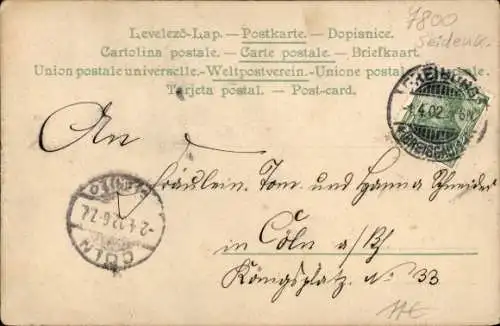 Levelező-Lap. — Postkarte. — Dopisnice.
Cartolina postale. — Carte postale. — Briefkaart.
Union postale universelle. — Weltpostverein. — Unione postale
Tarjeta postal. — Post-card.
7800
FREIBURG
1.4.02
(BREISGAU)
An
Fräulein Tom. und Hanna Schneider
in Cöln a/Rh
Königsplatz No 33
-2.4.02 6-7
CÖLN